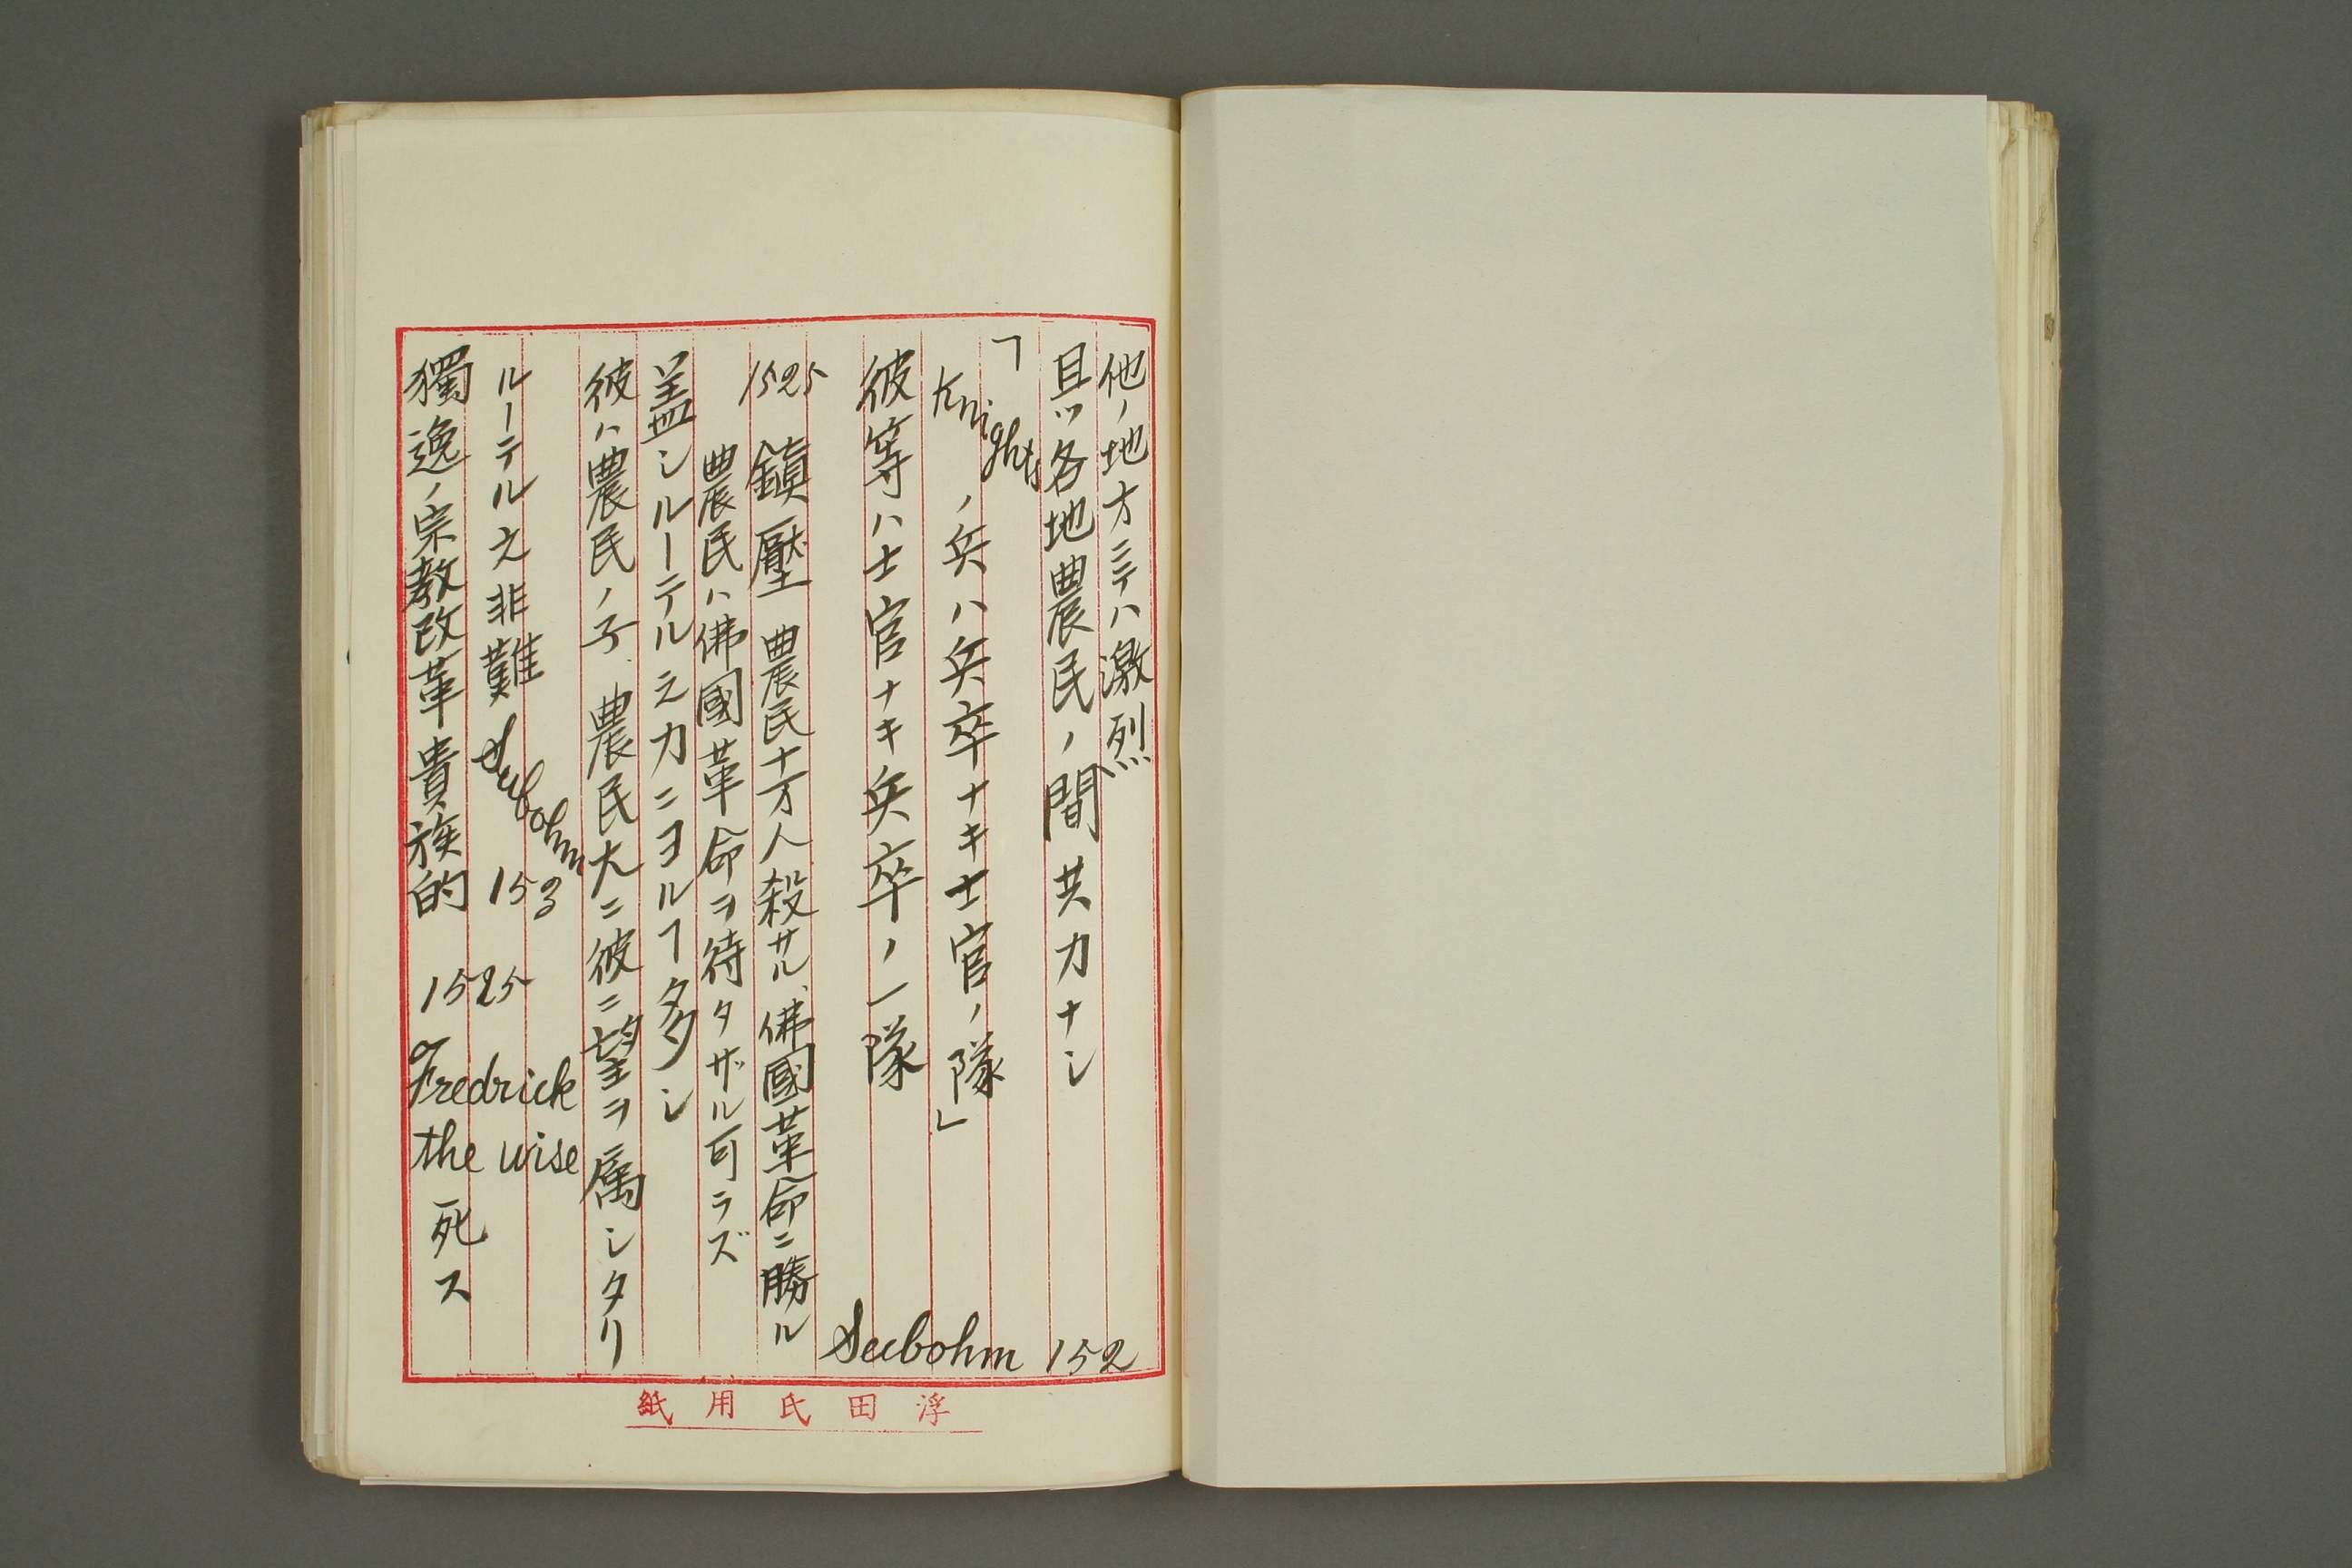 他ノ地方ニテハ激烈
且ツ各地農民ノ間共力ナシ
「Knightsノ兵ハ兵卒ナキ士官ノ隊」
彼等ハ士官ナキ兵卒ノ一隊
Seebohm 152
1525 鎮壓 農民十万人殺サル、佛國革命ニ勝ル
農民ハ佛國革命ヲ待タザル可ラズ
盖シルーテル之力ニヨルヿ多シ
彼ハ農民ノ子、農民大ニ彼ニ望ヲ属シタリ
ルーテル之非難 Seebohm 153
獨逸ノ宗教改革貴族的 1525 Fredrick the wise 死ス
浮田氏用紙